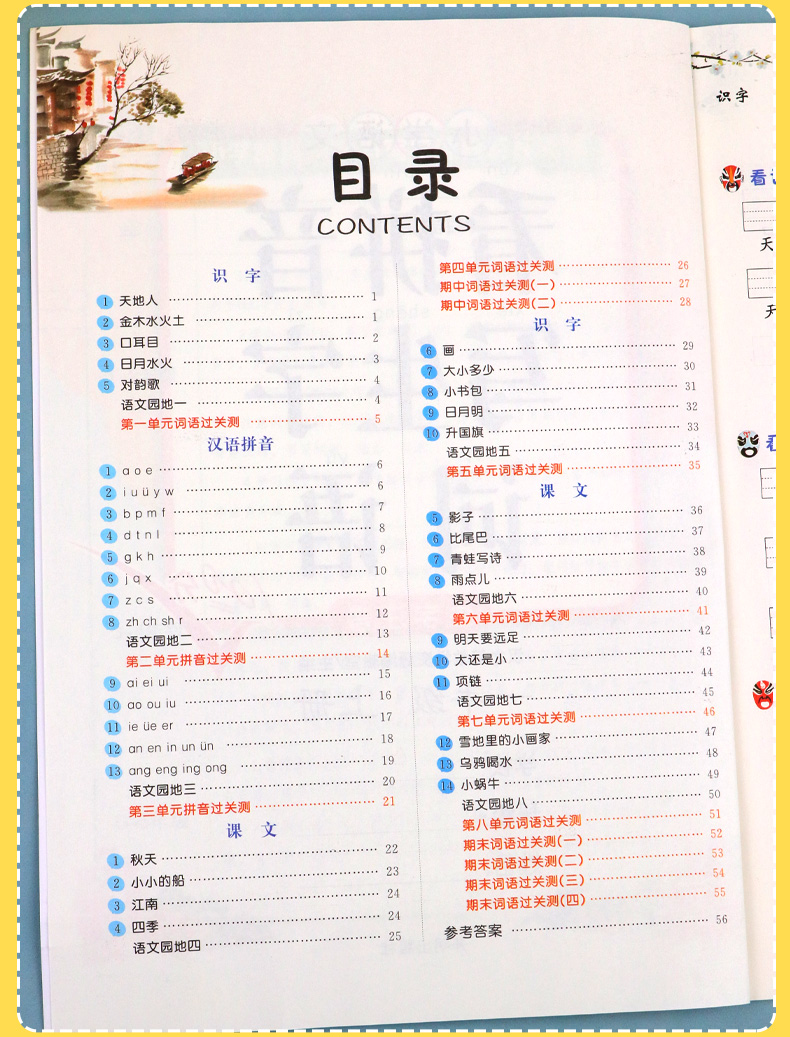 目录
CONTENTS
识 字
1 天地人 1
2 金木水火土 1
3 口耳目 2
4 日月水火 3
5 对韵歌 4
语文园地一 4
第一单元词语过关测 5
汉语拼音
1 a o e 6
2 i u ü y w 6
3 b p m f 7
4 d t n l 8
5 g k h 9
6 j q x 10
7 z c s 11
8 zh ch sh r 12
语文园地二 13
第二单元拼音过关测 14
9 ai ei ui 15
10 ao ou iu 16
11 ie üe er 17
12 an en in un ün 18
13 ang eng ing ong 19
语文园地三 20
第三单元拼音过关测 21
课 文
1 秋天 22
2 小小的船 23
3 江南 24
4 四季 24
语文园地四 25
第四单元词语过关测 26
期中词语过关测(一) 27
期中词语过关测(二) 28
识 字
6 画 29
7 大小多少 30
8 小书包 31
9 日月明 32
10 升国旗 33
语文园地五 34
第五单元词语过关测 35
课 文
5 影子 36
6 比尾巴 37
7 青蛙写诗 38
8 雨点儿 39
语文园地六 40
第六单元词语过关测 41
9 明天要远足 42
10 大还是小 43
11 项链 44
语文园地七 45
第七单元词语过关测 46
12 雪地里的小画家 47
13 乌鸦喝水 48
14 小蜗牛 49
语文园地八 50
第八单元词语过关测 51
期末词语过关测(一) 52
期末词语过关测(二) 53
期末词语过关测(三) 54
期末词语过关测(四) 55
参考答案 56
识字
看
天